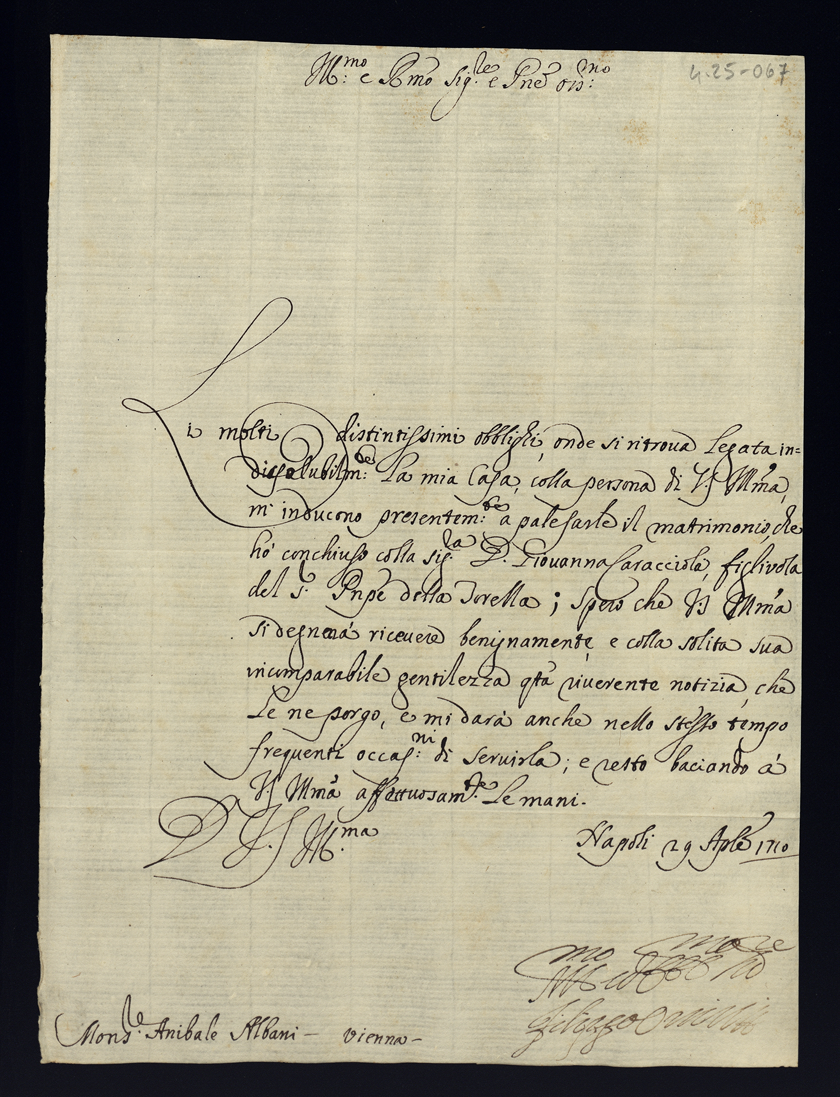 Ill:mo e Rmo Sig:re e Pne oss:mo
4.25-067
Li molti distintissimi obblighi, onde si ritroua legata in=
dissolubilm:te La mia Casa, colla persona di VS Illma,
m'inducono presentem:te a palesarle il matrimonio, che
hò conchiuso colla sig:ra D. Giovanna Caracciola, figlivola
del S.r Pnpe della Torella; spero che VS Illma
si degnerà riceuere benignamente, e colla solita sua
incomparabile gentilezza qta riuerente notizia, che
Le ne porgo, e mi darà anche nello stesso tempo
frequenti occas:ni di seruirla; e resto baciando à
VS Illma affettuosam:te Le mani.
D VS Ill:ma
Napoli 29 Aple 1710
Mons:re Anibale Albani - Vienna -